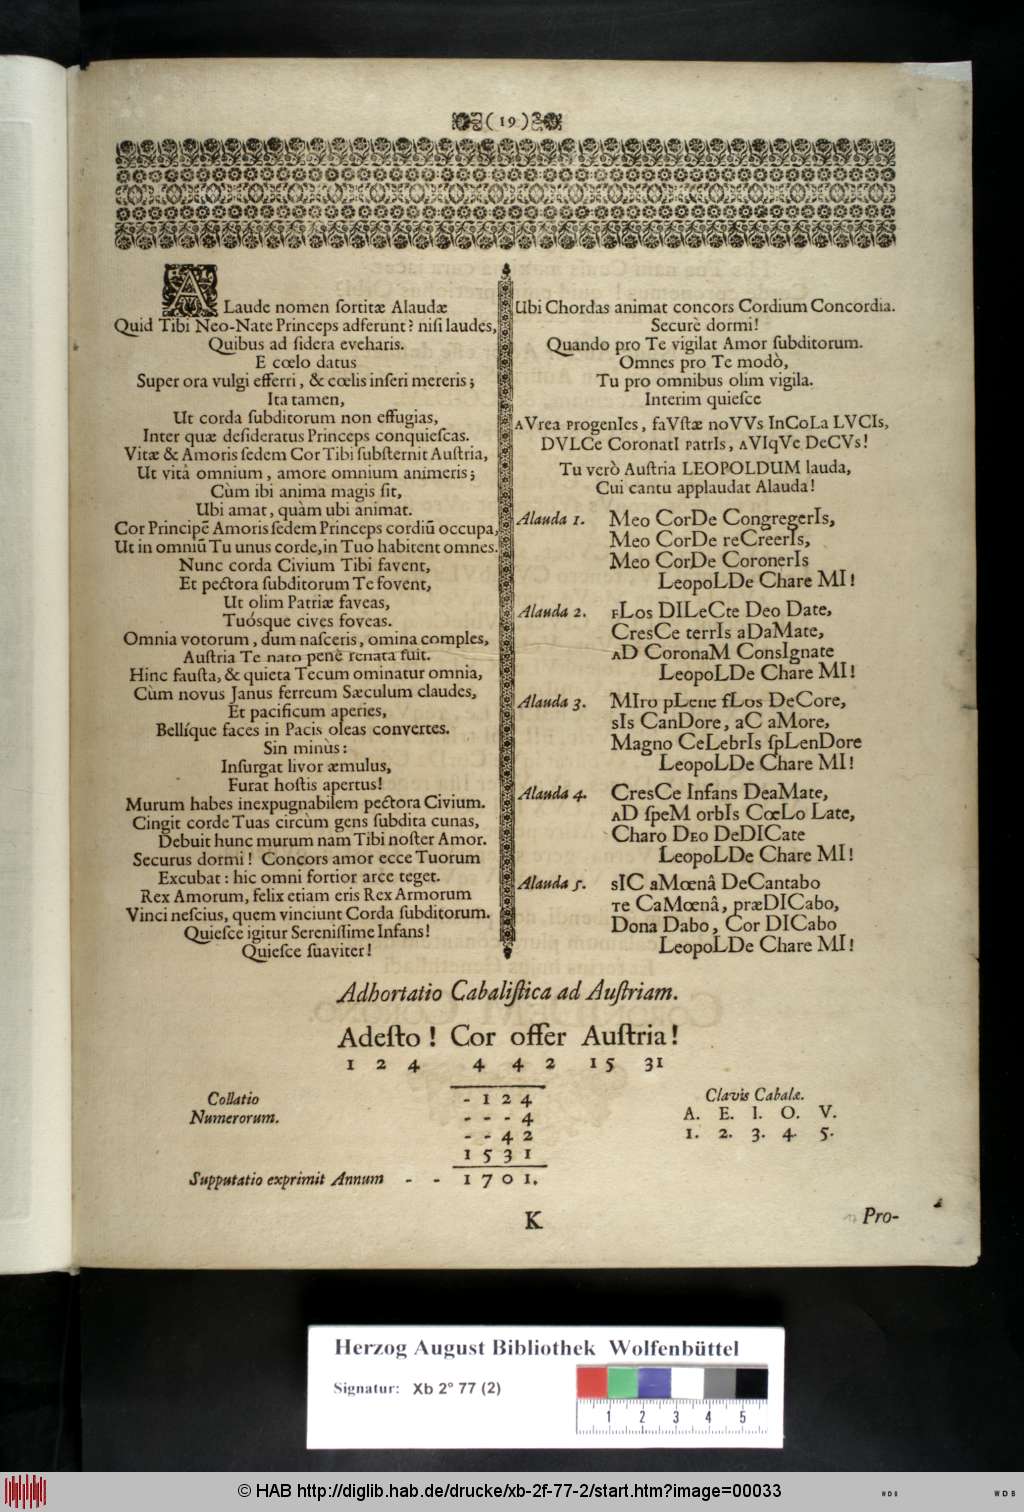 ( 19 )
A Laude nomen ſortitæ Alaudæ
Quid Tibi Neo-Nate Princeps adferunt? niſi laudes,
Quibus ad ſidera eveharis.
E cœlo datus
Super ora vulgi efferri, & cœlis inſeri mereris;
Ita tamen,
Ut corda ſubditorum non effugias,
Inter quæ deſideratus Princeps conquieſcas.
Vitæ & Amoris ſedem Cor Tibi ſubſternit Auſtria,
Ut vitâ omnium, amore omnium animeris;
Cùm ibi anima magis ſit,
Ubi amat, quàm ubi animat.
Cor Principē Amoris ſedem Princeps cordiū occupa,
Ut in omniū Tu unus corde, in Tuo habitent omnes.
Nunc corda Civium Tibi favent,
Et pectora ſubditorum Te fovent,
Ut olim Patriæ faveas,
Tuósque cives foveas.
Omnia votorum, dum naſceris, omina comples,
Auſtria Te nato penè renata fuit.
Hinc fauſta, & quieta Tecum ominatur omnia,
Cùm novus Janus ferreum Sæculum claudes,
Et pacificum aperies,
Bellíque faces in Pacis oleas convertes.
Sin minùs:
Inſurgat livor æmulus,
Furat hoſtis apertus!
Murum habes inexpugnabilem pectora Civium.
Cingit corde Tuas circùm gens ſubdita cunas,
Debuit hunc murum nam Tibi noſter Amor.
Securus dormi! Concors amor ecce Tuorum
Excubat: hic omni fortior arce teget.
Rex Amorum, felix etiam eris Rex Armorum
Vinci neſcius, quem vinciunt Corda ſubditorum.
Quieſce igitur Sereniſſime Infans!
Quieſce ſuaviter!
Ubi Chordas animat concors Cordium Concordia.
Securè dormi!
Quando pro Te vigilat Amor ſubditorum.
Omnes pro Te modò,
Tu pro omnibus olim vigila.
Interim quieſce
AVrea progenIes, faVſtæ noVVs InCoLa LVCIs,
DVLCe CoronatI patrIs, AVIqVe DeCVs!
Tu verò Auſtria LEOPOLDUM lauda,
Cui cantu applaudat Alauda!
Alauda 1. Meo CorDe CongregerIs,
Meo CorDe reCreerIs,
Meo CorDe CoronerIs
LeopoLDe Chare MI!
Alauda 2. fLos DILeCte Deo Date,
CresCe terrIs aDaMate,
AD CoronaM ConsIgnate
LeopoLDe Chare MI!
Alauda 3. MIro pLene fLos DeCore,
sIs CanDore, aC aMore,
Magno CeLebrIs ſpLenDore
LeopoLDe Chare MI!
Alauda 4. CresCe Infans DeaMate,
AD ſpeM orbIs CœLo Late,
Charo Deo DeDICate
LeopoLDe Chare MI!
Alauda 5. sIC aMœnâ DeCantabo
Te CaMœnâ, præDICabo,
Dona Dabo, Cor DICabo
LeopoLDe Chare MI!
Adhortatio Cabaliſtica ad Auſtriam.
Adeſto! Cor offer Auſtria!
1 2 4 4 4 2 15 31
Collatio
Numerorum.
- 1 2 4
- - - 4
- - 4 2
1 5 3 1
Supputatio exprimit Annum - - 1 7 0 1.
Clavis Cabalæ.
A. E. I. O. V.
1. 2. 3. 4. 5.
K
Pro-
Herzog August Bibliothek Wolfenbüttel
Signatur: Xb 2° 77 (2)
1 2 3 4 5
© HAB http://diglib.hab.de/drucke/xb-2f-77-2/start.htm?image=00033